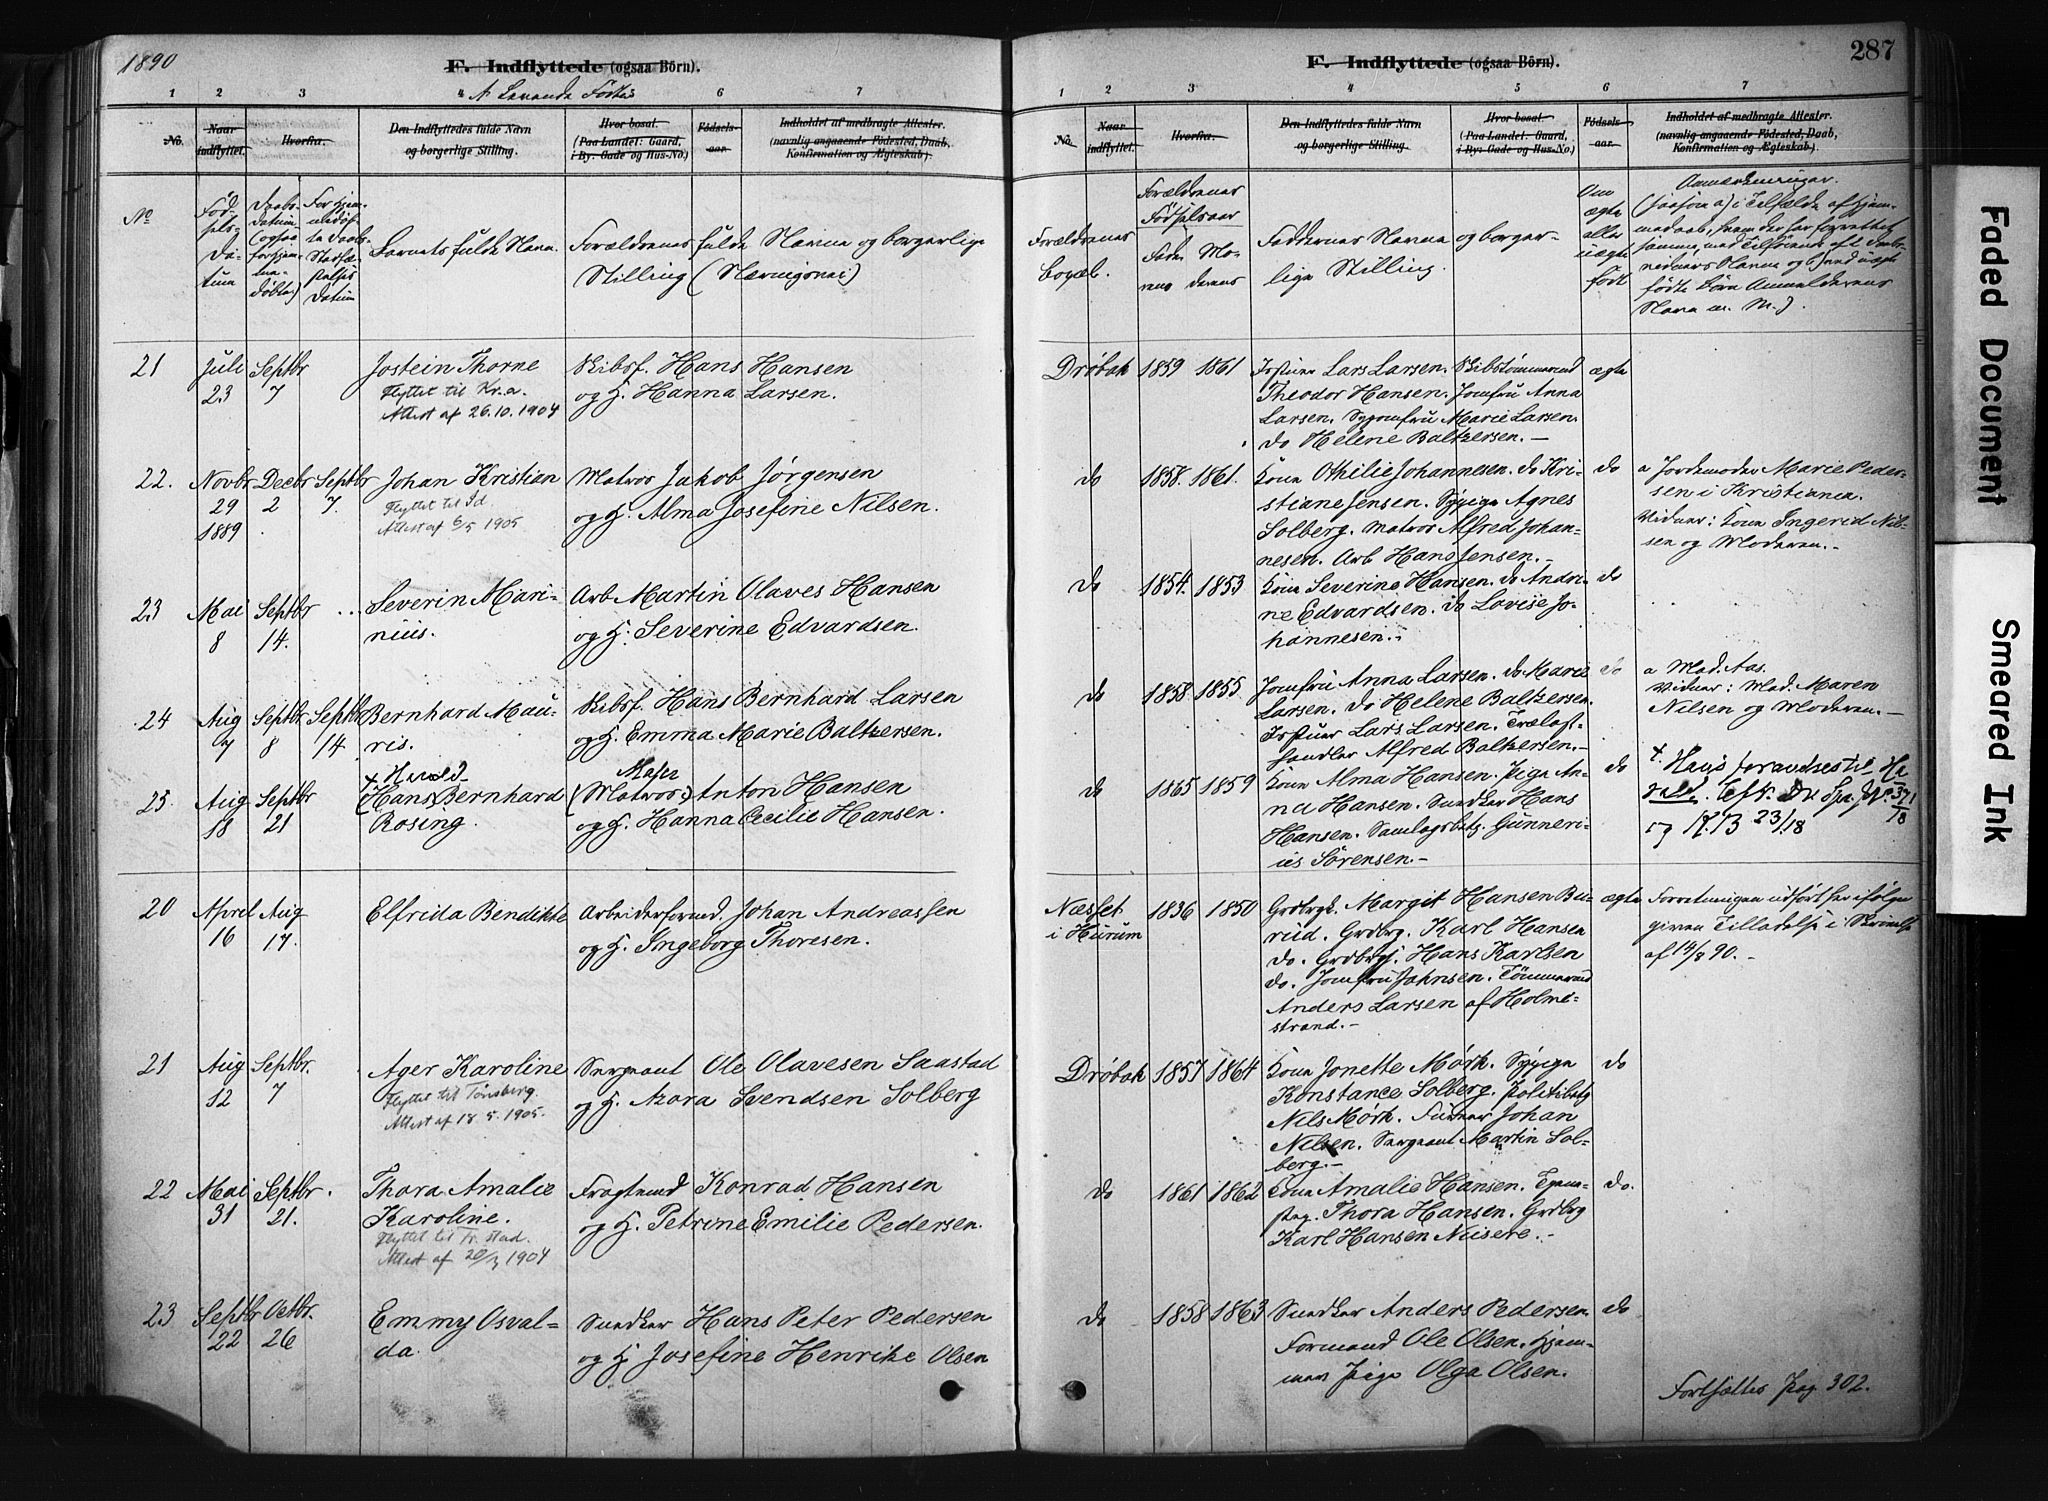 1890
F. Indflyttede (ogsaa Börn).
A. Levende Fødte
1 2 3 4 6 7
No.
Naar indflyttet.
Hvorfra.
Den Indflyttedes fulde Navn og borgerlige Stilling.
Hvor bosat. (Paa Landet: Gaard, i By: Gade og Hus-No.)
Födsels-aar.
Indholdet af medbragte Attester. (navnlig angaaende Födested, Daab, Konfirmation og Ægteskab.)
No
Fød-
sels-
Da-
tum
Daabs-
datum
(ogsaa
for hjem-
me-
døbte)
For hjem-
medøb-
te Daabs-
Stadfæ-
stelses
Datum
Barnets fulde Navn.
Forældrenes fulde Navne og borgerlige
Stilling (Næringsvei)
21
Juli
23
Septbr
7
Jostein Thorne
Flyttet til Kr.a.
Attest af 26.10.1904
Skibsf. Hans Hansen
og H. Hanna Larsen.
22.
Novbr
29
1889
Decbr
2
Septbr
7.
Johan Kristian
Flyttet til Id.
Attest af 6/5 1905
Matros Jakob Jørgensen
og H. Alma Josefine Nilsen.
23
Mai
8
Septbr
14.
Severin Mari-
nius.
Arb Martin Olaves Hansen
og H. Severine Edvardsen.
24
Aug
7
Septbr
8
Septbr
14
Bernhard Mau-
ris.
Skibsf. Hans Bernhard Larsen
og H. Emma Marie Baltzersen.
25.
Aug
18
Septbr
21
+ Harald
(Hans) Bernhard
Rosing.
(Matros) Anton Hansen
og H. Hanna Cecilie Hansen.
20
April
16
Aug
17.
Elfrida Bendikte
Arbeiderformd. Johan Andreassen
og H. Ingeborg Thoresen.
21
Aug
12
Septbr.
7
Ager Karoline
Flyttet til Tønsberg.
Attest af 18.5.1905.
Sergeant Ole Olavesen Saastad
og H. Azora Svendsen Solberg
22
Mai
31
Septbr.
21.
Thora Amalie
Karoline.
Flyttet til Fr.stad.
Attest af 20/3 1904
Fragtmd Konrad Hansen
og H. Petrine Emilie Pedersen.
23
Septbr
22
Octbr.
26
Emmy Osval-
da.
Snedker Hans Peter Pedersen
og H Josefine Henrike Olsen
287
F. Indflyttede (ogsaa Börn).
1 2 3 4 5 6 7
No.
Naar indflyttet.
Hvorfra.
Den Indflyttedes fulde Navn og borgerlige Stilling.
Hvor bosat. (Paa Landet: Gaard, i By: Gade og Hus-No.)
Födsels-aar.
Indholdet af medbragte Attester. (navnlig angaaende Födested, Daab, Konfirmation og Ægteskab.)
Forældrenes
Bopæl.
Forældrenes
Fødselsaar
Fade-
rens
Mo-
derens
Faddernes Navne og borger-
lige Stilling.
Om
ægte
eller
uægte
født
Anmærkninger.
(saasom a) i Tilfælde af Hjem-
medaab, hvem der har forrettet
samme, med Tilføiende af Vid-
nernes Navne og b) ved uægte
fødte Børn Anmelderens
Navn m. M.).
Drøbak 1859 1861
Lars Larsen. Skibstømmermd
Theodor Hansen. Jomfru Anna
Larsen. Syjomfru Marie Larsen.
do Helene Baltzersen.—
ægte
do 1858. 1861.
Kone Othilie Johannesen. do Kri-
stiane Jensen. Sypige Agnes
Solberg. Matros Alfred Johan-
nesen. Arb Hans Jensen.—
do
a Jordemoder Marie Peder-
sen i Kristiania.
Vidner: Kone Ingerid Nil-
sen og Moderen.—
do 1854. 1853
Kone Severine Hansen. do Andri-
ne Edvardsen. do Lovise Jo-
hannesen.—
do
do 1858 1855.
Jomfru Anna Larsen. do Marie
Larsen. do Helene Baltzersen.
Lars Larsen. Trælast-
handler Alfred Baltzersen.—
do
a Mad. Aas.
Vidner: Mad. Maren
Nilsen og Moderen.—
do 1865 1859
Kone Alma Hansen. Pige An-
na Hansen. Snedker Hans
Hansen. Samlagsbest. Gunneri-
us Sørensen.—
do
+. Hans forandres til Ha-
rald.
23/18
Næsset
i Hurum
1836 1850
Grdbrgk. Margit Hansen Bu-
rud. Grdbrg. Karl Hansen
do. Grdbrgs. Hans Karlsen
do. Jomfru Johnsen. Tømmermd
Anders Larsen af Holme-
strand.—
ægte
Forretningen udført her ifølge
given Tilladelse i Skrivelse
af 14/8 90.—
Drøbak 1857 1864
Kone Jonette Mørk. Sypige
Konstance Solberg. Politibetj
Nils Mørk. Johan
Nilsen. Sergeant Martin Sol-
berg.—
do
do 1861 1862
Kone Amalie Hansen. Tjene-
stpg. Thora Hansen. Grdbrg
Karl Hansen Nusere.—
do.
do 1858 1863
Snedker Anders Pedersen
Formand Ole Olsen. Hjem-
mev. Pige Olga Olsen.
do
Fortsættes Pag. 302.
Faded Document
Smeared Ink